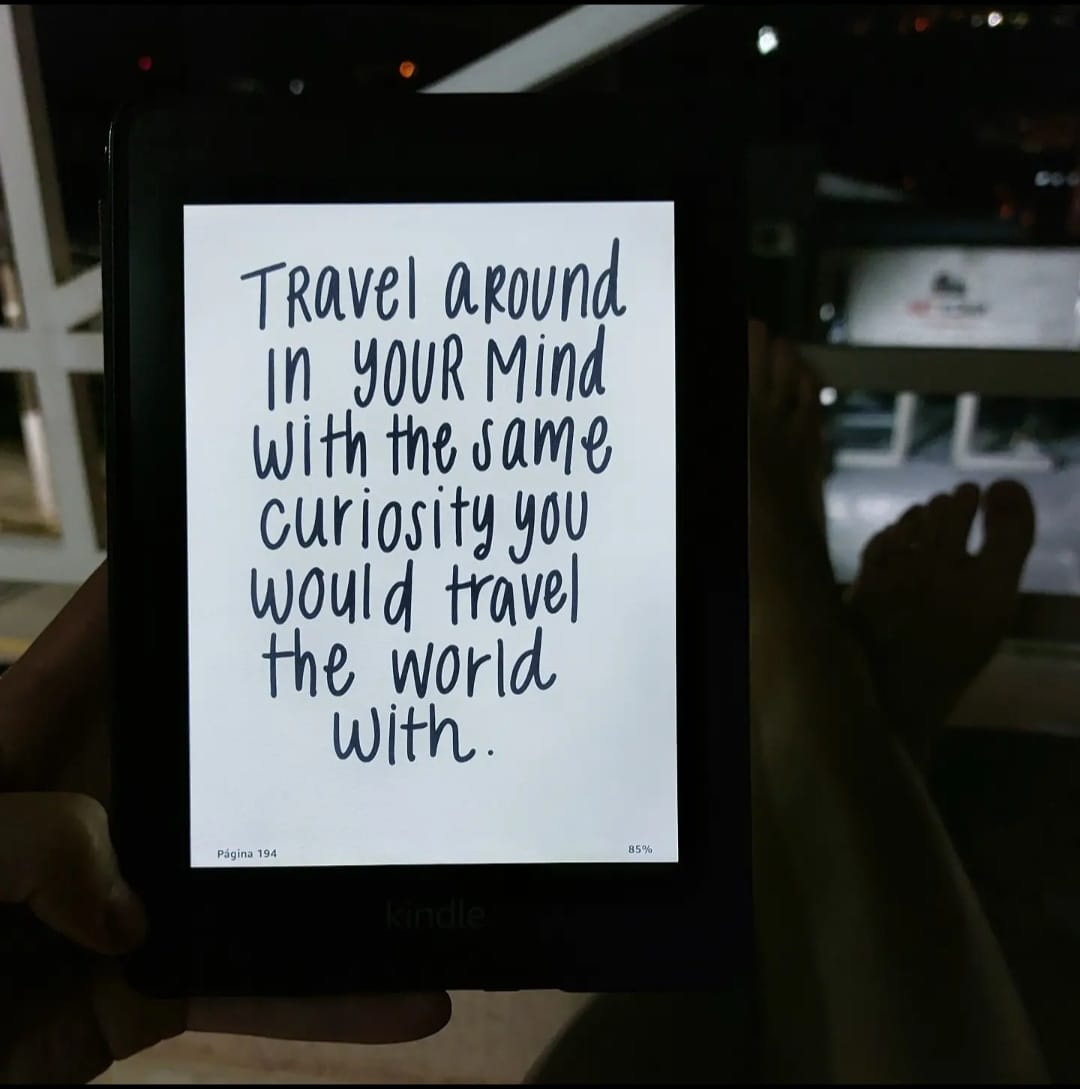 Travel around
in your mind
with the same
curiosity you
would travel
the world
with.
Página 194
85%
kindle